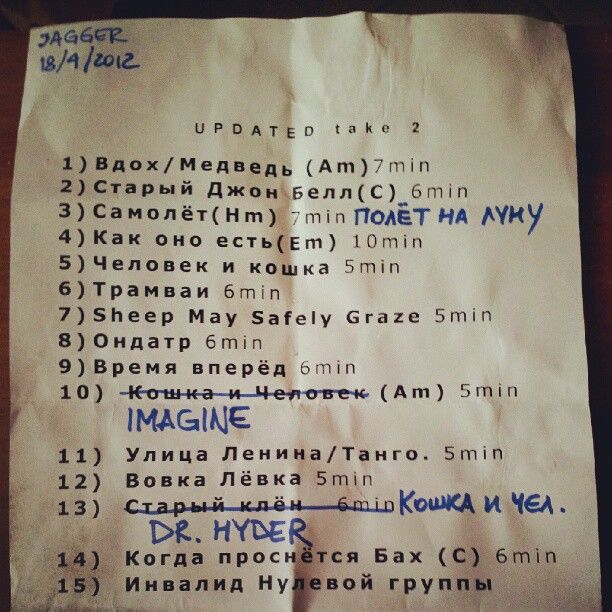 JAGGER
18/4/2012
UPDATED take 2
1) Вдох/Медведь (Am) 7min
2) Старый Джон Белл(С) 6min
3) Самолёт(Hm) 7min ПОЛЁТ НА ЛУНУ
4) Как оно есть(Em) 10min
5) Человек и кошка 5min
6) Трамваи 6min
7) Sheep May Safely Graze 5min
8) Ондатр 6min
9) Время вперёд 6min
10) Кошка и Человек (Am) 5min
IMAGINE
11) Улица Ленина/Танго. 5min
12) Вовка Лёвка 5min
13) Старый клён 6min КОШКА И ЧЕЛ.
DR. HYDER
14) Когда проснётся Бах (С) 6min
15) Инвалид Нулевой группы